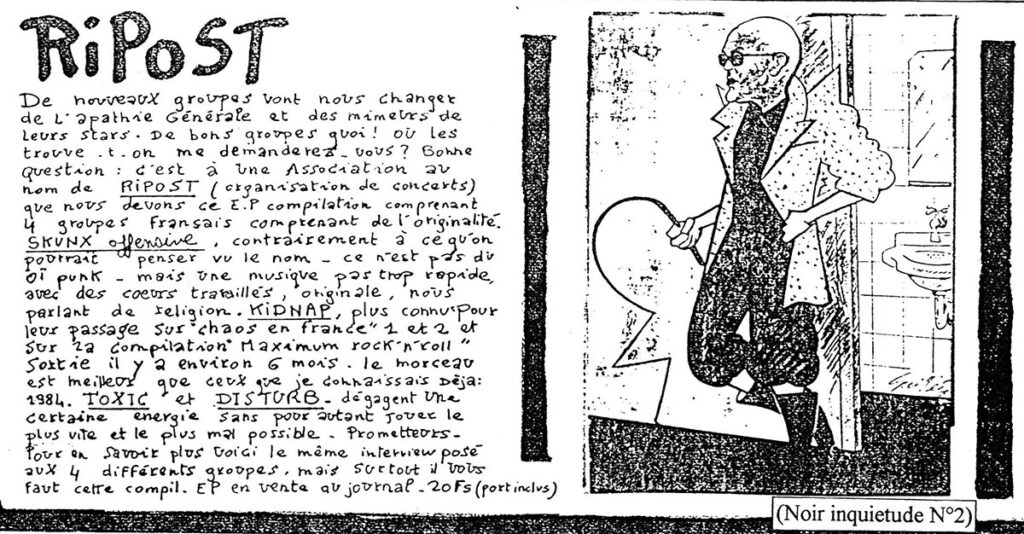 RiPOST
De nouveaux groupes vont nous changer
de l'apathie Générale et des mimeurs de
leurs stars. De bons groupes quoi! où les
trouve.t.on me demanderez-vous? Bonne
question : c'est à une Association au
nom de RiPOST (organisation de concerts)
que nous devons ce E.P compilation comprenant
4 groupes français comprenant de l'originalité.
SKUNX offensive, contrairement à ce qu'on
pourrait penser vu le nom - ce n'est pas du
oï punk - mais une musique pas trop rapide,
avec des coeurs travaillés, originale, nous
parlant de religion. KiDNAP, plus connus pour
leur passage sur "chaos en france" 1 et 2 et
sur la compilation "Maximum rock'n'roll"
sortie il y a environ 6 mois. le morceau
est meilleur que ceux que je connaissais Déjà:
1984. TOXIC et DISTURB - dégagent une
certaine energie sans pour autant jouer le
plus vite et le plus mal possible. Prometteurs-
Pour en savoir plus voici le même interview posé
aux 4 différents groupes, mais surtout il vous
faut cette compil. EP en vente au journal - 20Fs (port inclus)
(Noir inquietude N°2)